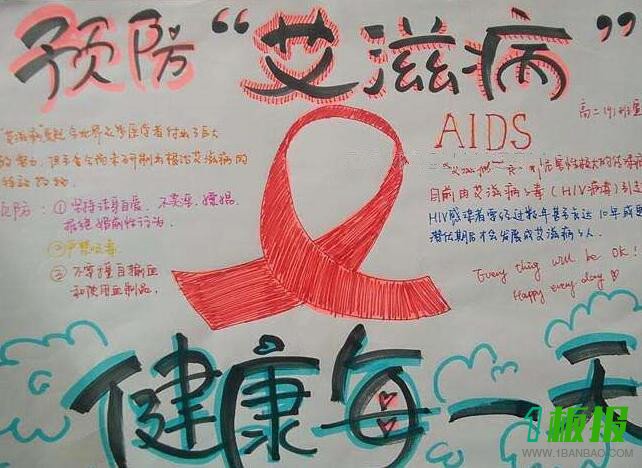 预防“艾滋病”
高二(9)班宣
AIDS
艾滋病
全世界
医疗者付出了巨大
的努力,但至今尚未研制出根治艾滋病的
特效药物
是一种危害性极大的传染病
目前由艾滋病病毒(HIV病毒)引
HIV感染者要经过数年甚至长达10年或更
潜伏期后才会发展成艾滋病病人.
预防:①坚持洁身自爱,不卖淫、嫖娼
拒绝婚前性行为.
严禁吸毒
不要擅自输血
和使用血制品.
Every thing will be ok!
Happy every day
健康每一天
1板报
WWW.1BANBAO.COM